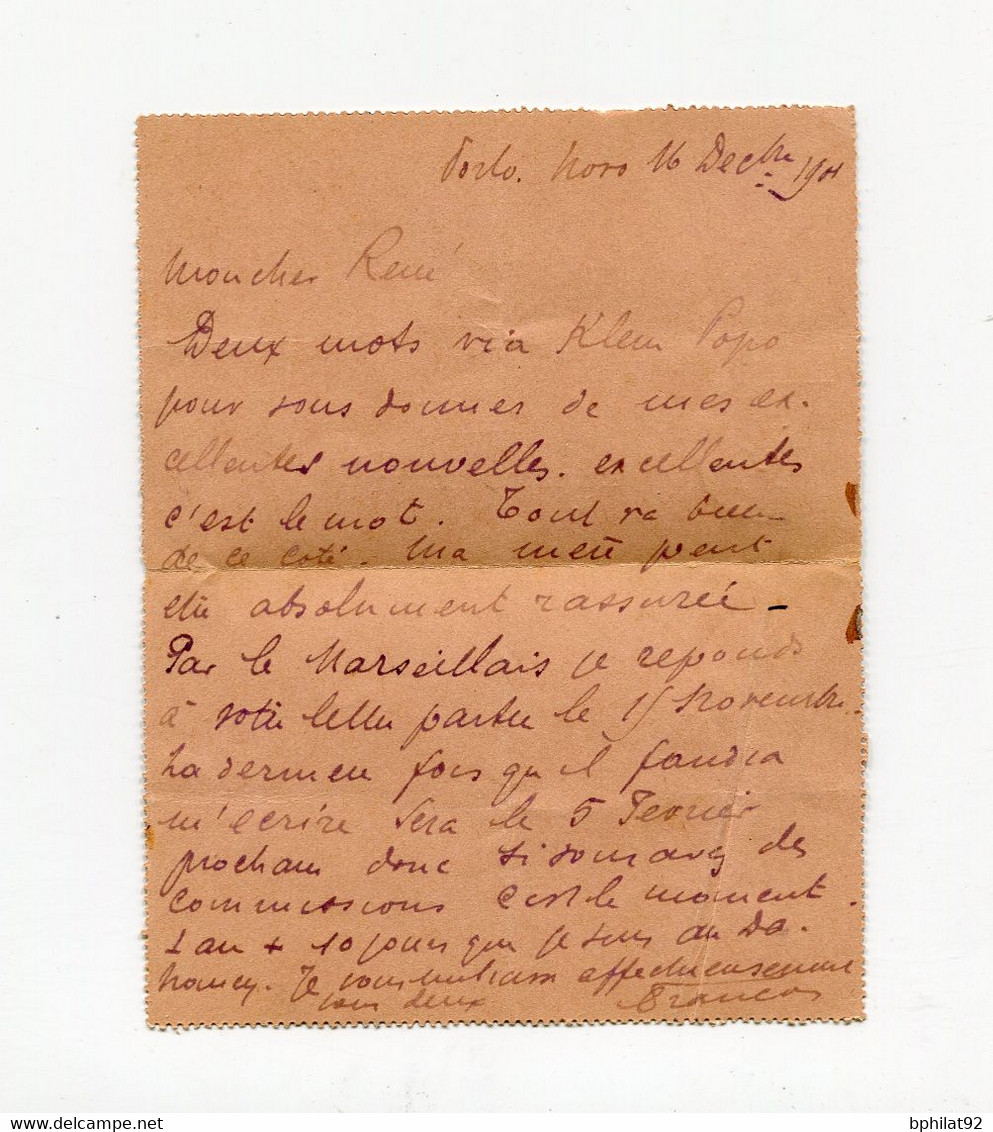 Porto. Novo 16 Decbre 1901
Mon cher René
Deux mots via Klein Popo
pour vous donner de mes ex-
cellentes nouvelles. excellentes
c'est le mot. Tout va bien
de ce coté. Ma mère peut
etre absolument rassurée -
Par le Marseillais je reponds
à votre lettre partie le 15 Novembre.
La derniere fois qu'il faudra
m'ecrire sera le 5 Fevrier
prochain donc si vous avez des
commissions c'est le moment.
1 an + 10 jours que je suis au Da-
homey. Je vous embrasse affectueusement
tous deux François
delcampe.net
bphilat92